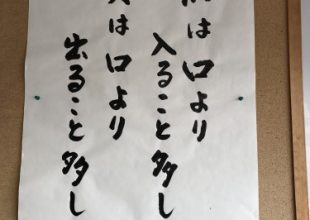 は口より
入ること多し
は口より
出ること多し